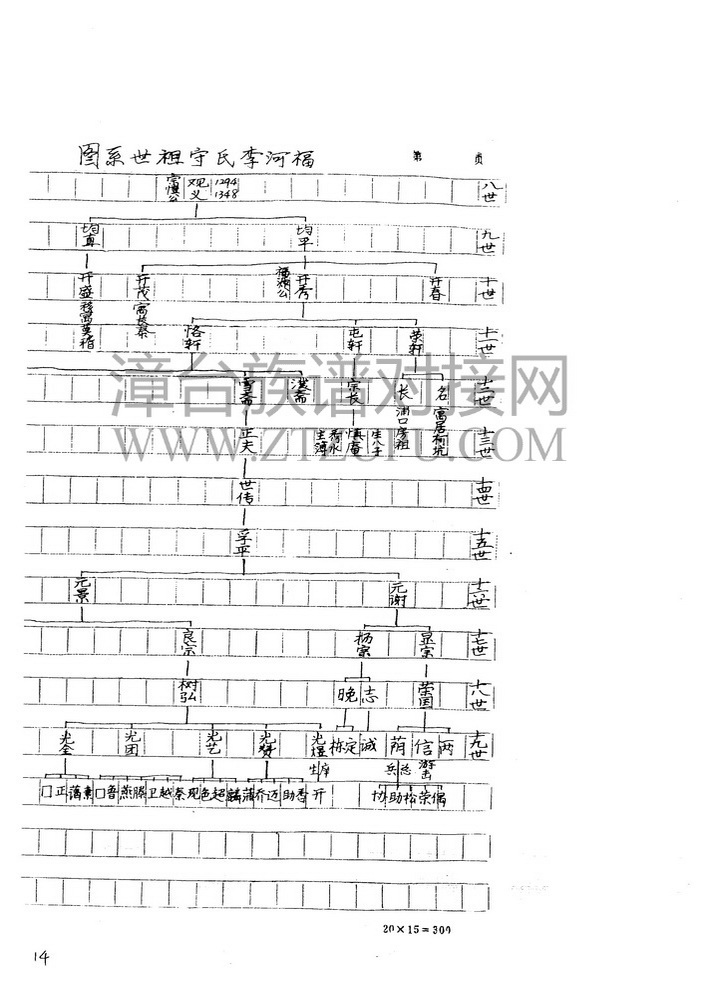 福河李氏守祖世系图
第 页
八世 1294 1348 观义 宗慎公
九世 均平 均真
十世 开春 开秀 福河公 开茂 寓长泰 开盛 移寓英稽
十一世 荣轩 屯轩 恪轩
十二世 名 寓居有坑 长 浦口房祖 宗长 淡斋 雪斋
十三世 生八子 慎庵 正夫
十四世 世传
十五世 孚平
十六世 元谢 元景
十七世 显宗 杨宗 良宗
十八世 荣国 志 晚 树弘
十九世 两 信 游击 荫 总兵 诚 定 栋 光煜 庠生 光赞 光艺 光团 光全
偶 荣 松 助 协 开 香 助 迈 乔 蒲 麟 超 色 现 秦 越 卫 滕 燕 鲁 口 素 蔼 正 门
漳台族谱对接网
WWW.ZTZUPU.COM
20×15=300
14